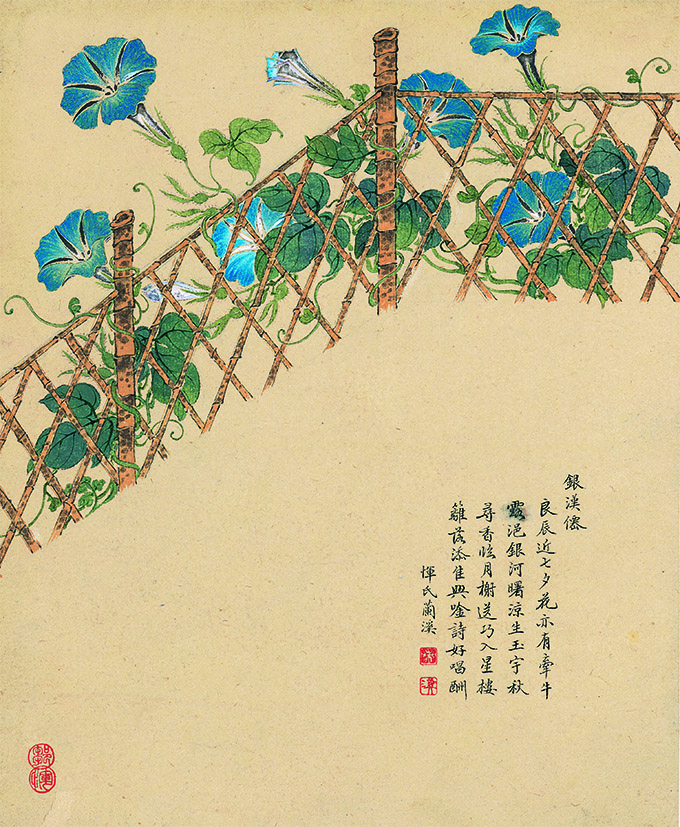 銀漢僊
良辰近七夕花亦有牽牛
露浥銀河曙涼生玉宇秋
尋香眩月榭送巧入星樓
籬落添佳興唫詩好唱酬
惲氏蘭溪